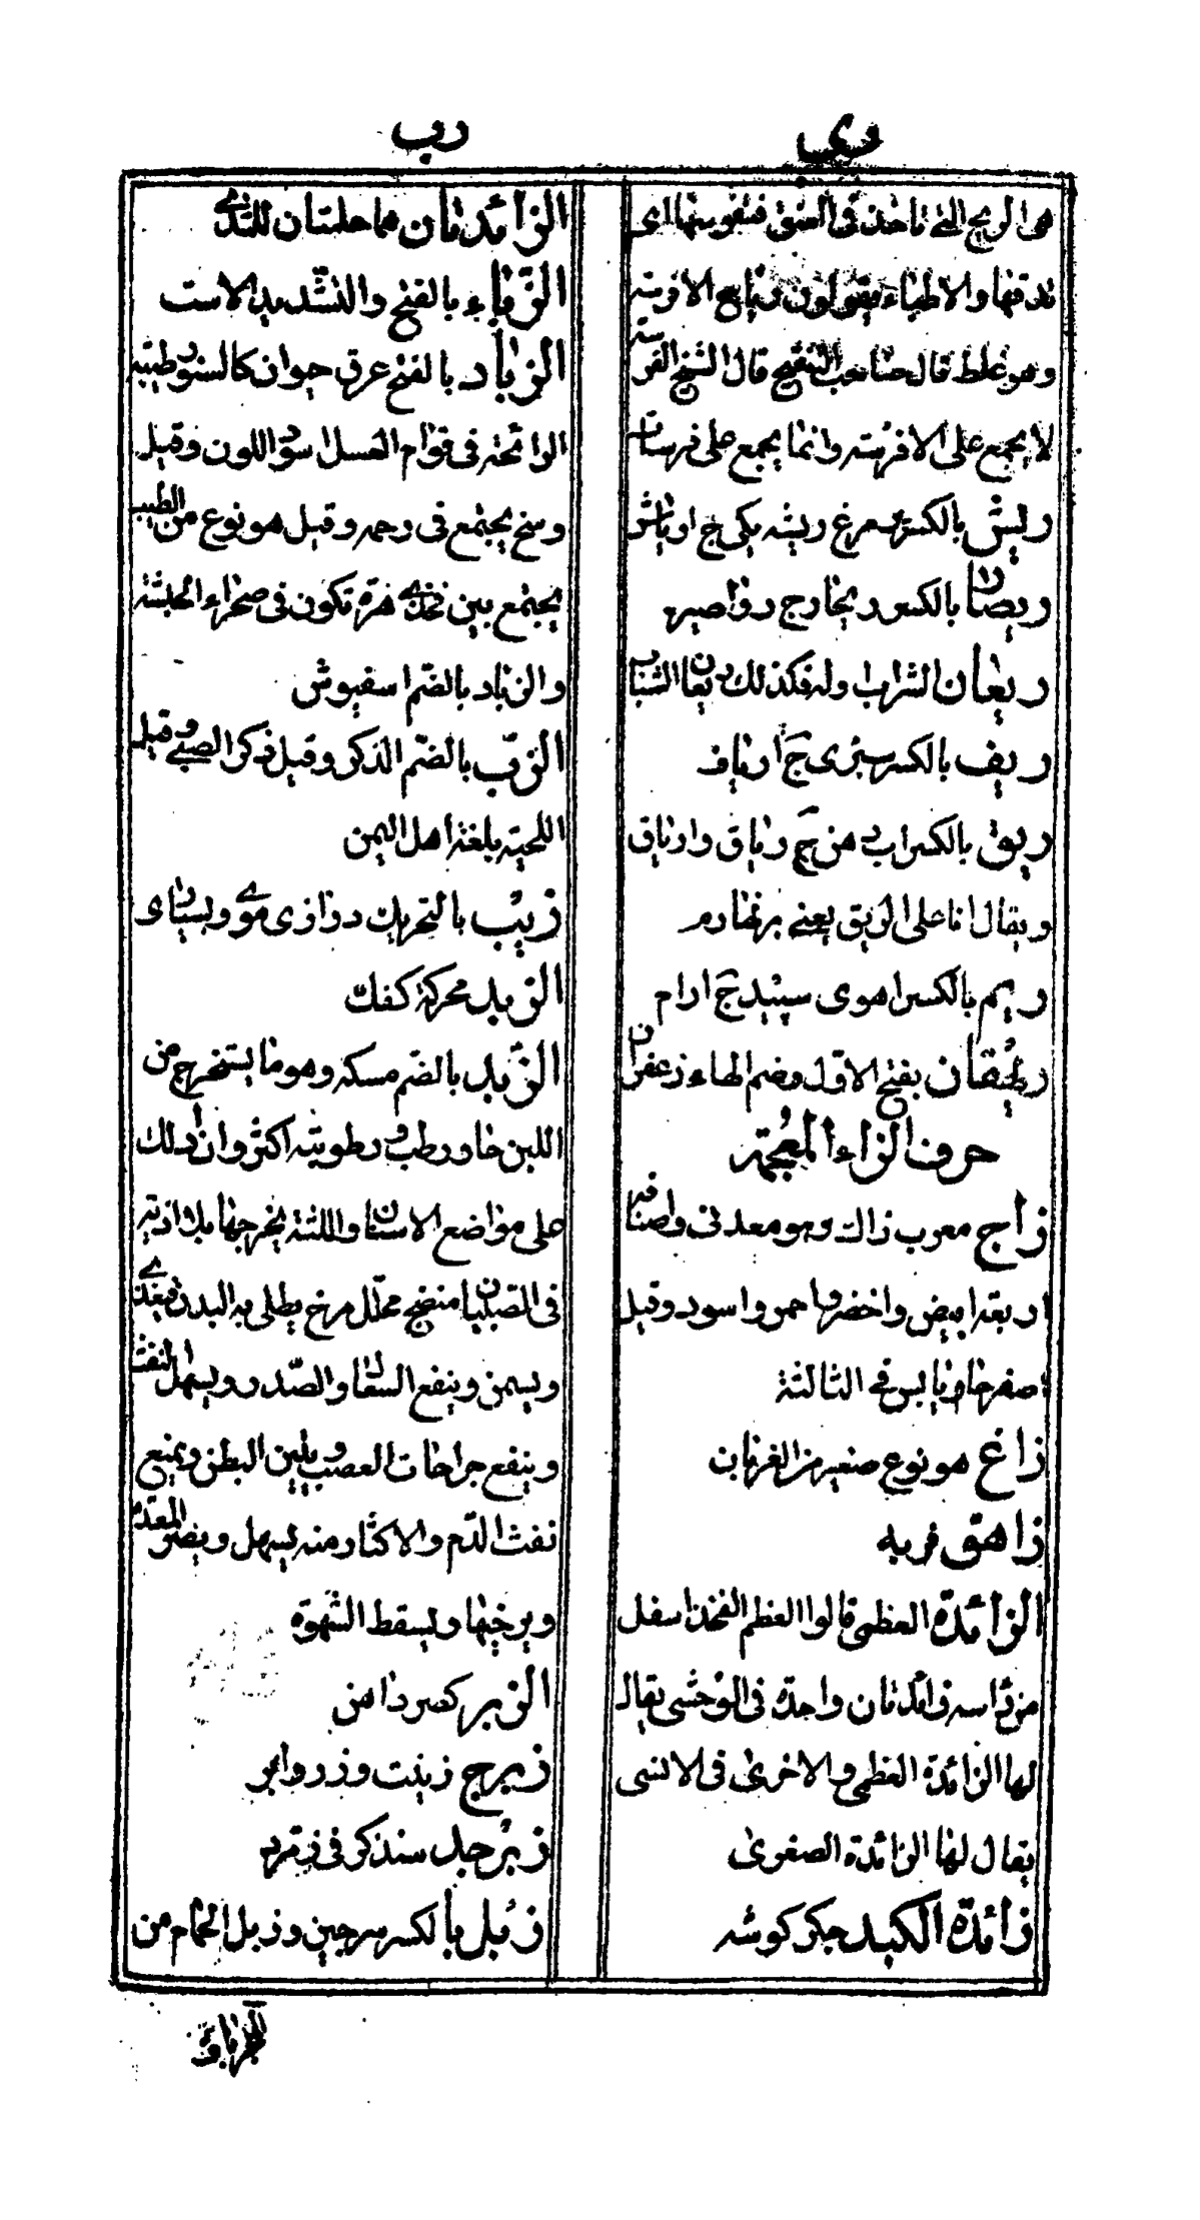 ری
هی الریح التی تاخذ فی العنق فتفرسها ای
تدقها والاطباء یقولون ریاح الافرسه
وهو غلط قال صاحب التنقیح قال الشیخ الفرسة
لا یجمع علی الافرسه وانما یجمع علی فرسات
ریش بالکسر مرغ ریشه یکی ج اریاش
ریصان بالکسر ریخارج رواصیر
ریعان الشراب وله فکذلک ریعان الشباب
ریف بالکسر سبزی ج اریاف
ریق بالکسر اب دهن ج ریاق واریاق
ویقال انا علی الریق یعنی بر نهارم
ریم بالکسر اهوی سپید ج ارام
ریهقان بفتح الاول وضم الهاء زعفران
حرف الزاء المعجمة
زاج معرب زاک وهو معدنی واصنافه
اربعة ابیض واخضر واحمر واسود وقیل
اصفر حار یابس فی الثالثة
زاغ هو نوع صغیر من الغربان
زاهق فربه
الزائدة العظمی قالوا العظم الفخذ اسفل
من راسه زائدتان واحدة فی الوحشی یقال
لها الزائدة العظمی والاخری فی الانسی
یقال لها الزائدة الصغری
زائدة الکبد جکر کوشه
زب
الزائدتان هما حلمتان للثدی
الزباء بالفتح والتشدید الاست
الزباد بالفتح عرق حیوان کالسنور طیبة
الرائحة فی قوام العسل اسود اللون وقیل
وسخ یجتمع فی رحمه وقیل هو نوع من الطیب
یجتمع بین فخذی هرة تکون فی صحراء الحبشة
والزباد بالضم اسفیوش
الزب بالضم الذکر وقیل ذکر الصبی وقیل
اللحیة بلغة اهل الیمن
زبب بالتحریک درازی موی وبسیاری
الزبد محرکة کفک
الزبد بالضم مسکه وهو ما یستخرج من
اللبن حار رطب ورطوبته اکثر وان دلک
علی مواضع الاسنان واللثة یخرجها بلا اذیة
فی الصبیان منضج محلل مرخ یطلی به البدن فیغذی
ویسمن وینفع السعال والصدر ویسهل النفث
وینفع جراحات العصب ویلین البطن ویمنع
نفث الدم والاکثار منه یسهل ویضر المعدة
ویرخیها ویسقط الشهوة
الزبر کصرد اهن
زبرج زینت وزر وابر
زبرجد سنذکر فی زمرد
زبل بالکسر سرجین وزبل الحمام من